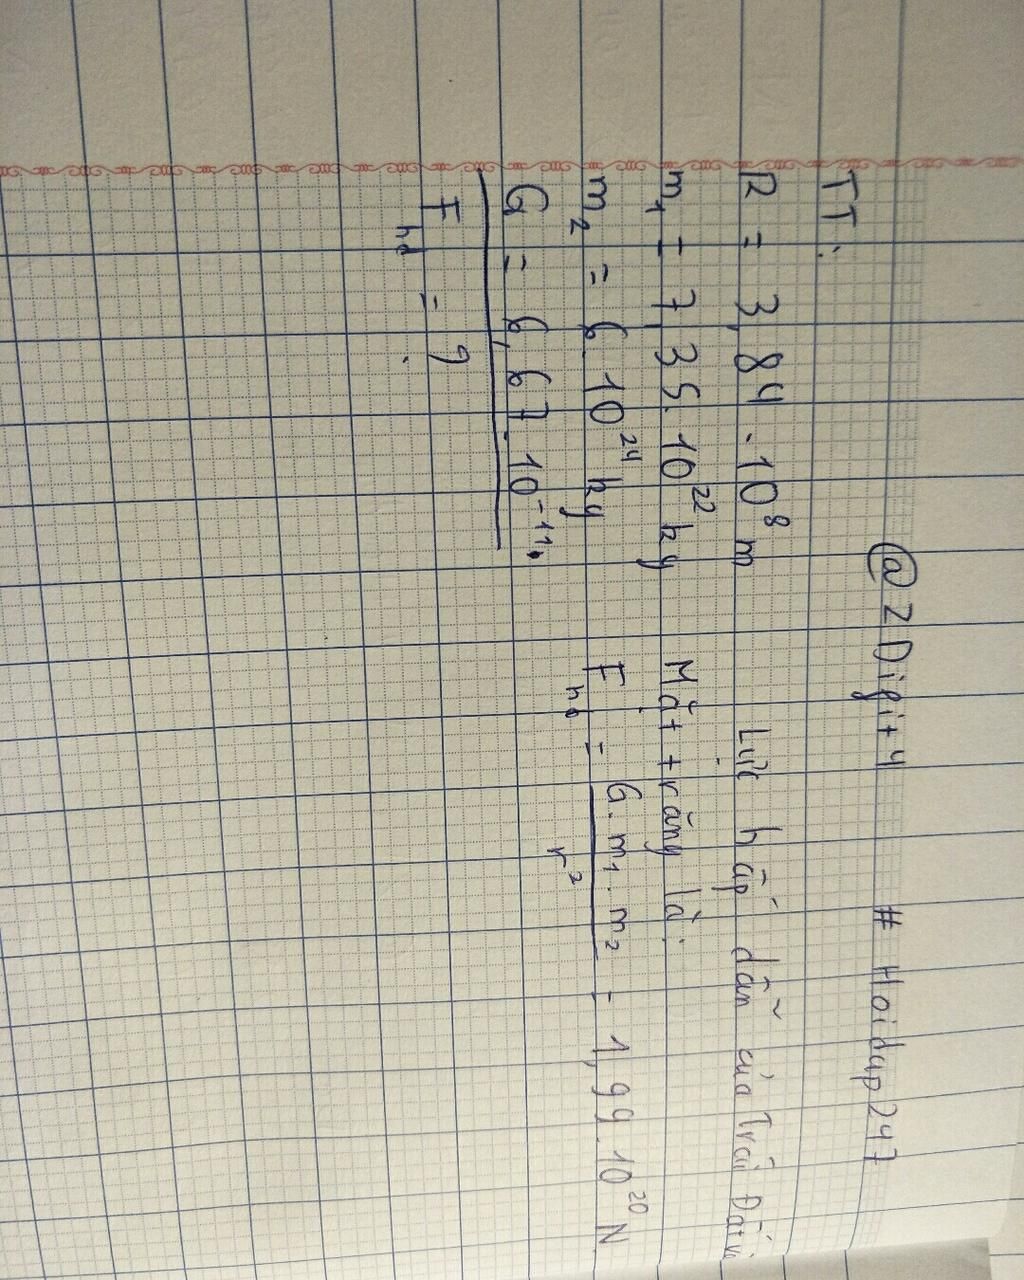 @2Difit4 # Hoidap247
TT:
R = 3,84 . 10⁸ m
m₁ = 7,35. 10²² kg
m₂ = 6. 10²⁴ kg
G = 6,67. 10⁻¹¹.
F hd = ?
Lực hấp dẫn của Trái Đất và
Mặt trăng là:
F hd = G. m₁. m₂ / r² = 1,99.10²⁰ N